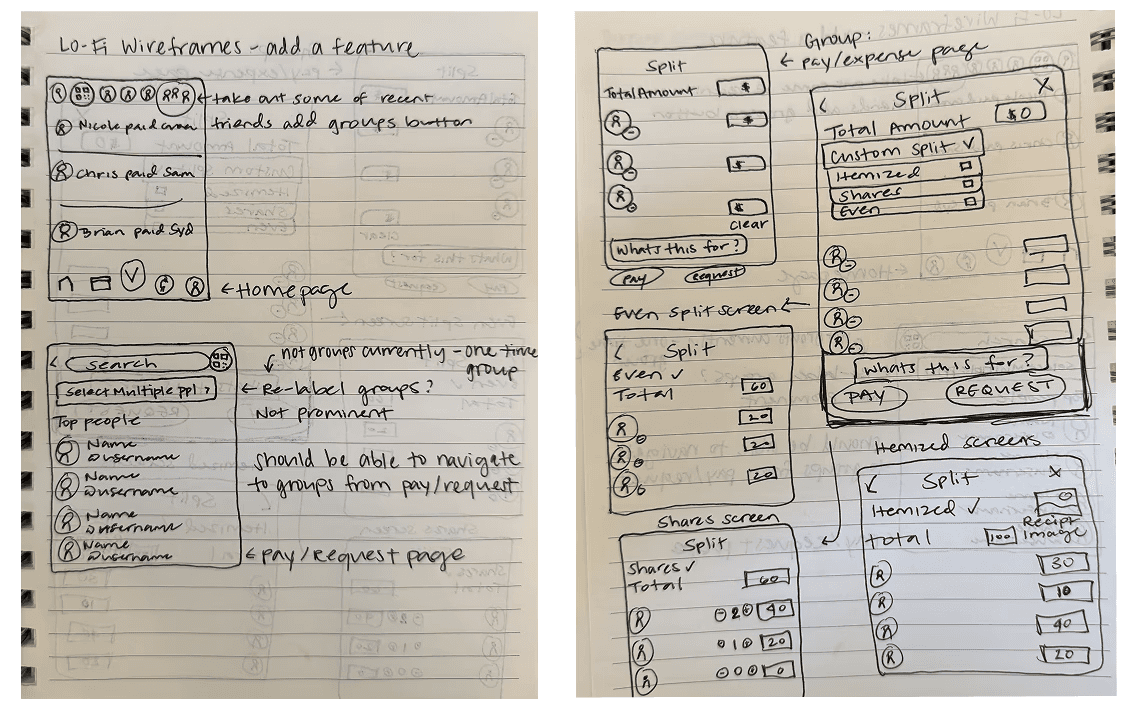 LO-Fi Wireframes - add a feature
take out some of recent
friends add groups button
Nicole paid
Chris paid Sam
Brian paid Syd
Homepage
search
not groups currently - one time
group
Select Multiple ppl ?
Re-label groups?
Not prominent
Top people
Name
@username
Name
@username
Name
@username
Name
@username
should be able to navigate
to groups from pay/request
pay/request page
Group:
pay/expense page
Split
Total Amount $
$
$
$
clear
Whats this for?
pay request
Split X
Total Amount $0
Custom Split
Itemized
Shares
Even
Whats this for?
PAY REQUEST
Even Split screen
Split
Even ✓
Total 60
20
20
20
Shares screen
Split
Shares ✓
Total 60
2 40
1 20
0 0
Itemized screens
Split X
Itemized ✓
Recipt
Image
total 100
30
10
40
20